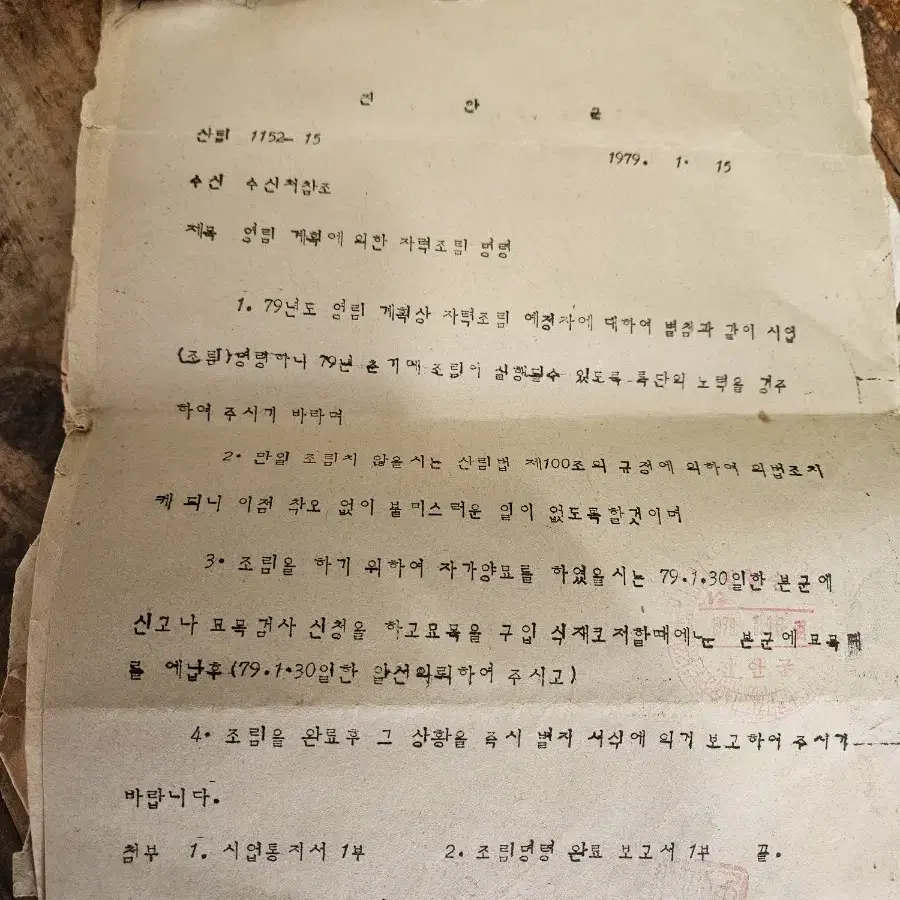 진 안 군
산림 1152-15
1979. 1. 15
수신 수신처참조
제목 영림 계획에 의한 자력조림 명령
1. 79년도 영림 계획상 자력조림 예정자에 대하여 별첨과 같이 시업
(조림)명령하니 79년 춘기에 조림이 실행될수 있도록 특단의 노력을 경주
하여 주시기 바라며
2. 만일 조림치 않을시는 산림법 제100조의 규정에 의하여 의법조치
케 되니 이점 착오 없이 불미스러운 일이 없도록할것이며
3. 조림을 하기 위하여 자가양묘를 하였을시는 79.1.30일한 본군에
신고나 묘목검사 신청을 하고묘목을 구입 식재코저할때에는 본군에 묘목
를 예납후(79.1.30일한 알선의뢰하여 주시고)
진안군
4. 조림을 완료후 그 상황을 즉시 별지 서식에 의거 보고하여 주시기
바랍니다.
첨부 1. 시업통지서 1부 2. 조림명령 완료 보고서 1부 끝.